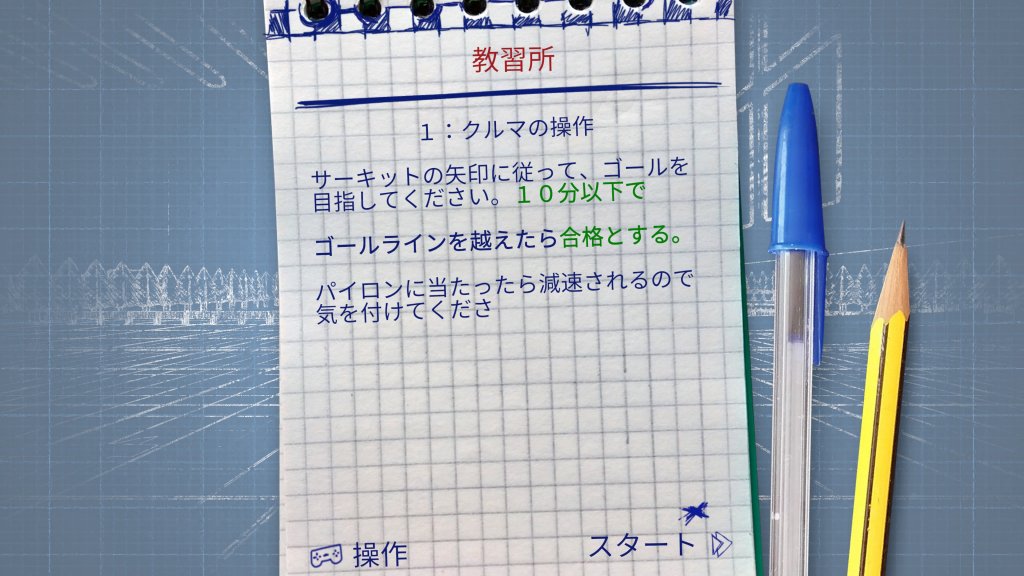 教習所
１：クルマの操作
サーキットの矢印に従って、ゴールを
目指してください。１０分以下で
ゴールラインを越えたら合格とする。
パイロンに当たったら減速されるので
気を付けてくださ
操作
スタート